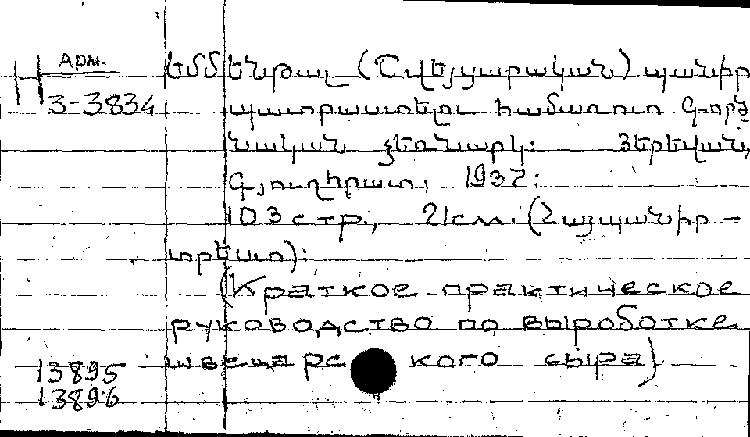 Арм.
Н
3-3834
Եմմենթալ (Շվեյցարական) պանիր
պատրաստելու համառոտ Գործ
նական ձեռնարկ: Յերեվան,
Գյուղհրատ, 1937:
103 стр., 21 см. (Հայպանիր-
տրեստ):
(Краткое практическое
руководство по выроботке
швецарского сыра)
13895
13896